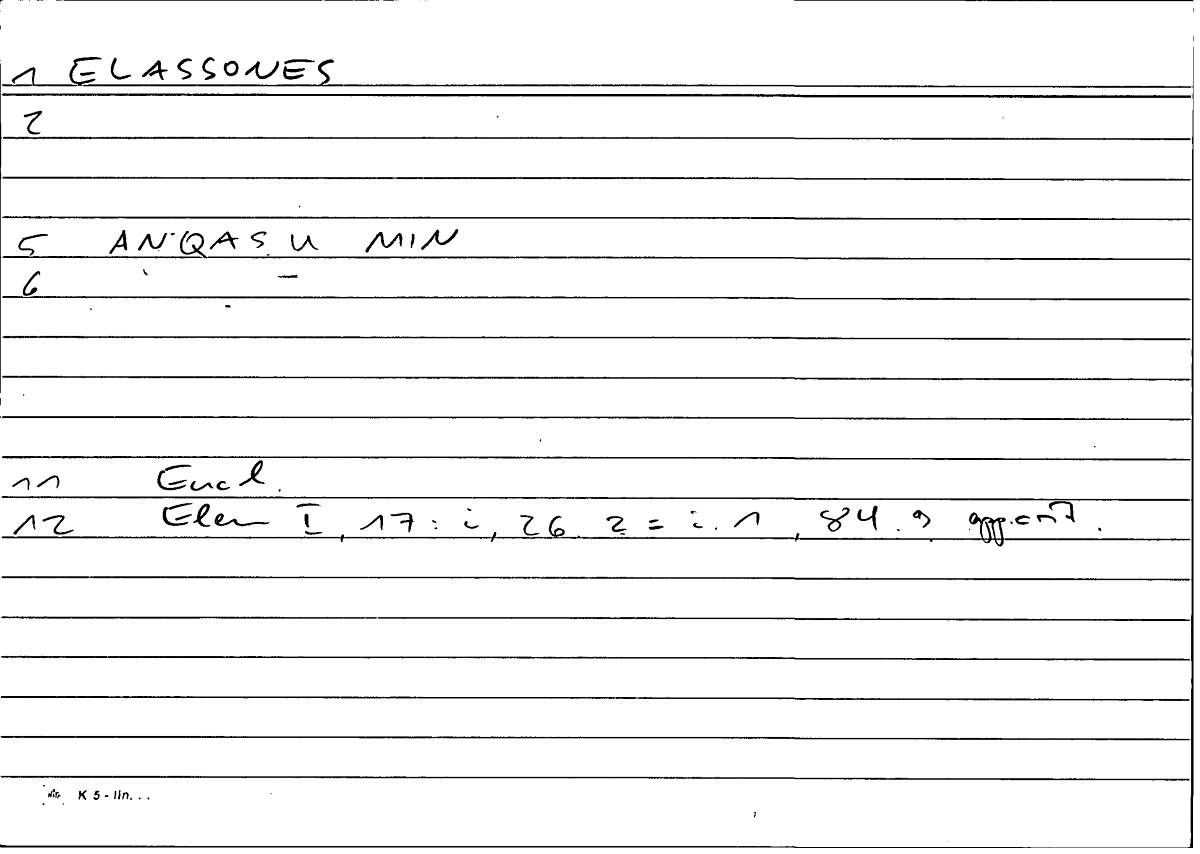 1 ELASSONES
2
5 ANQAS. U MIN
6
11 Eucl.
12 Elem I, 17: i, 26. 2 = i. 1, 84. 9 app. crit.
K 5 - lin. . .